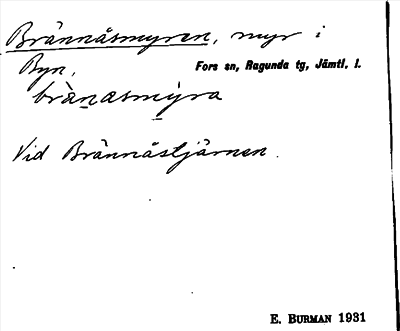 Brännåsmyren, myr i
Byn, Fors sn, Ragunda tg, Jämtl. l.
brä̀nasmýra
Vid Brännåstjärnen.
E. BURMAN 1931